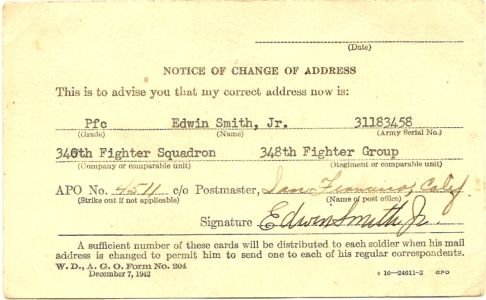 (Date)
NOTICE OF CHANGE OF ADDRESS
This is to advise you that my correct address now is:
Pfc Edwin Smith, Jr. 31183458
(Grade) (Name) (Army Serial No.)
340th Fighter Squadron 348th Fighter Group
(Company or comparable unit) (Regiment or comparable unit)
APO No. 4511 c/o Postmaster, San Francisco, Calif
(Strike out if not applicable) (Name of post office)
Signature Edwin Smith Jr.
A sufficient number of these cards will be distributed to each soldier when his mail
address is changed to permit him to send one to each of his regular correspondents.
W. D., A. G. O. Form No. 204
December 7, 1942 16—24611-3 GPO